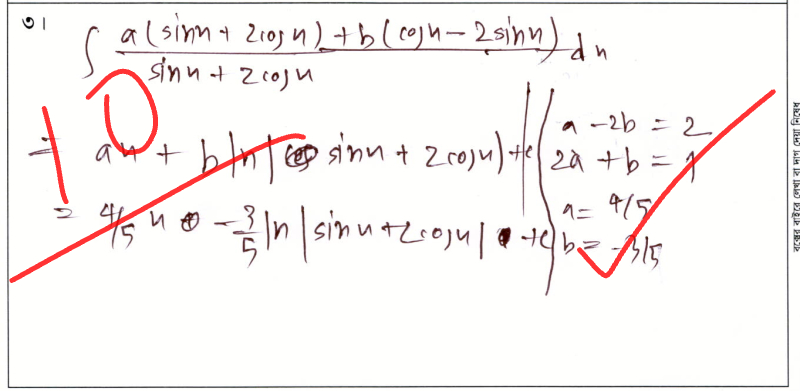 ৩।
∫ a(sinx + 2cosx) + b(cosx - 2sinx) / sinx + 2cosx dx
= ax + b ln| sinx + 2cosx| + c
= 4/5 x - 3/5 ln |sinx + 2cosx| + c
a - 2b = 2
2a + b = 1
a = 4/5
b = -3/5
10
বক্সের বাইরে লেখা বা দাগ দেয়া নিষেধ